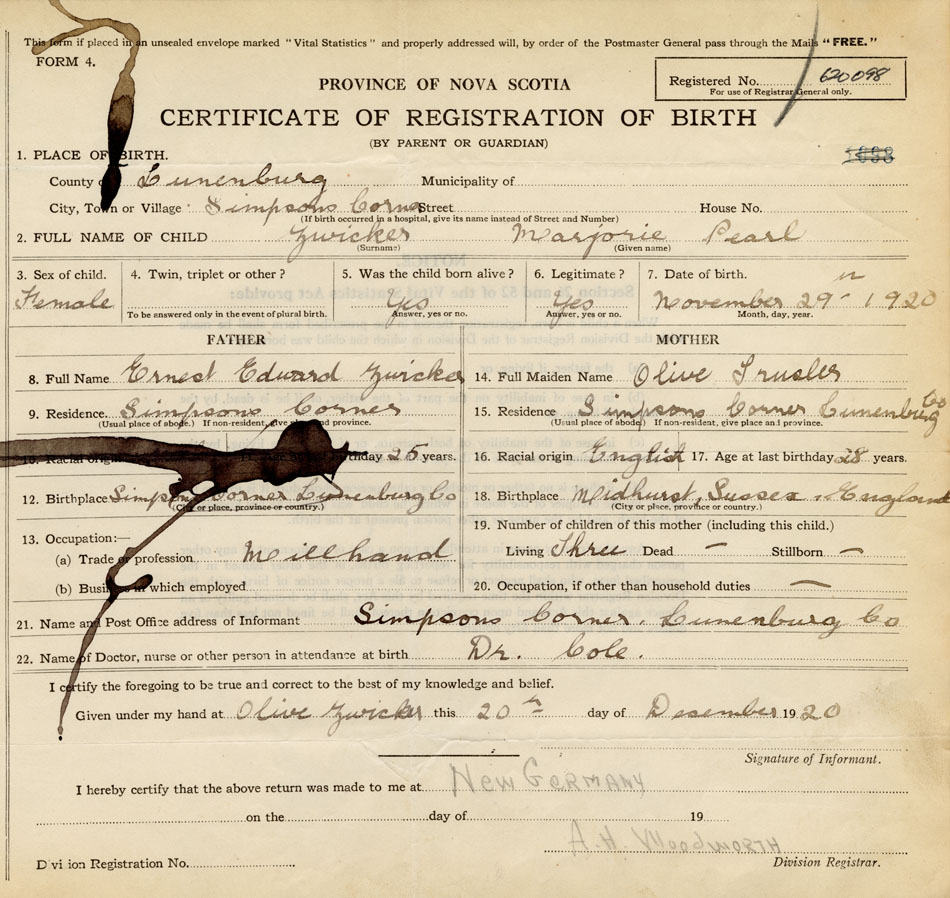 This form if placed in an unsealed envelope marked "Vital Statistics" and properly addressed will, by order of the Postmaster General pass through the Mails "FREE."
FORM 4.
PROVINCE OF NOVA SCOTIA
Registered No. 620098
For use of Registrar General only.
CERTIFICATE OF REGISTRATION OF BIRTH
(BY PARENT OR GUARDIAN)
1. PLACE OF BIRTH.
County of Lunenburg Municipality of
City, Town or Village Simpsons Corner Street House No.
(If birth occurred in a hospital, give its name instead of Street and Number)
2. FULL NAME OF CHILD Zwicker Marjorie Pearl
(Surname) (Given name)
3. Sex of child. 4. Twin, triplet or other? 5. Was the child born alive? 6. Legitimate? 7. Date of birth.
Female Yes Yes November 29 1920
To be answered only in the event of plural birth. Answer, yes or no. Answer, yes or no. Month, day, year.
FATHER MOTHER
8. Full Name Ernest Edward Zwicker
9. Residence. Simpsons Corner
(Usual place of abode.) If non-resident, give place and province.
10. Racial origin birthday 25 years.
12. Birthplace Simpsons Corner Lunenburg Co
(City or place, province or country.)
13. Occupation:—
(a) Trade or profession Millhand
(b) Business in which employed
14. Full Maiden Name Olive Trusler
15. Residence Simpsons Corner Lunenburg Co
(Usual place of abode.) If non-resident, give place and province.
16. Racial origin English 17. Age at last birthday 28 years.
18. Birthplace Midhurst, Sussex, England
(City or place, province or country.)
19. Number of children of this mother (including this child.)
Living Three Dead — Stillborn —
20. Occupation, if other than household duties —
21. Name and Post Office address of Informant Simpsons Corner. Lunenburg Co
22. Name of Doctor, nurse or other person in attendance at birth Dr. Cole.
I certify the foregoing to be true and correct to the best of my knowledge and belief.
Given under my hand at Olive Zwicker this 20th day of Desember 1920
Signature of Informant.
I hereby certify that the above return was made to me at New Germany
on the day of 19
A. H. Woodworth
Division Registration No. Division Registrar.